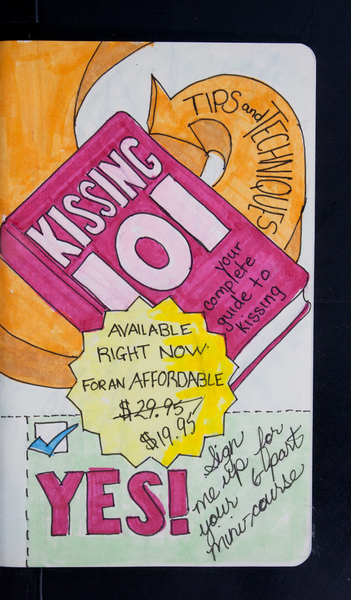 TIPS and TECHNIQUES
KISSING
101
your
complete
guide to
kissing
AVAILABLE
RIGHT NOW
FOR AN AFFORDABLE
$29.95
$19.95
YES!
Sign
me up for
your 6-part
mini-course